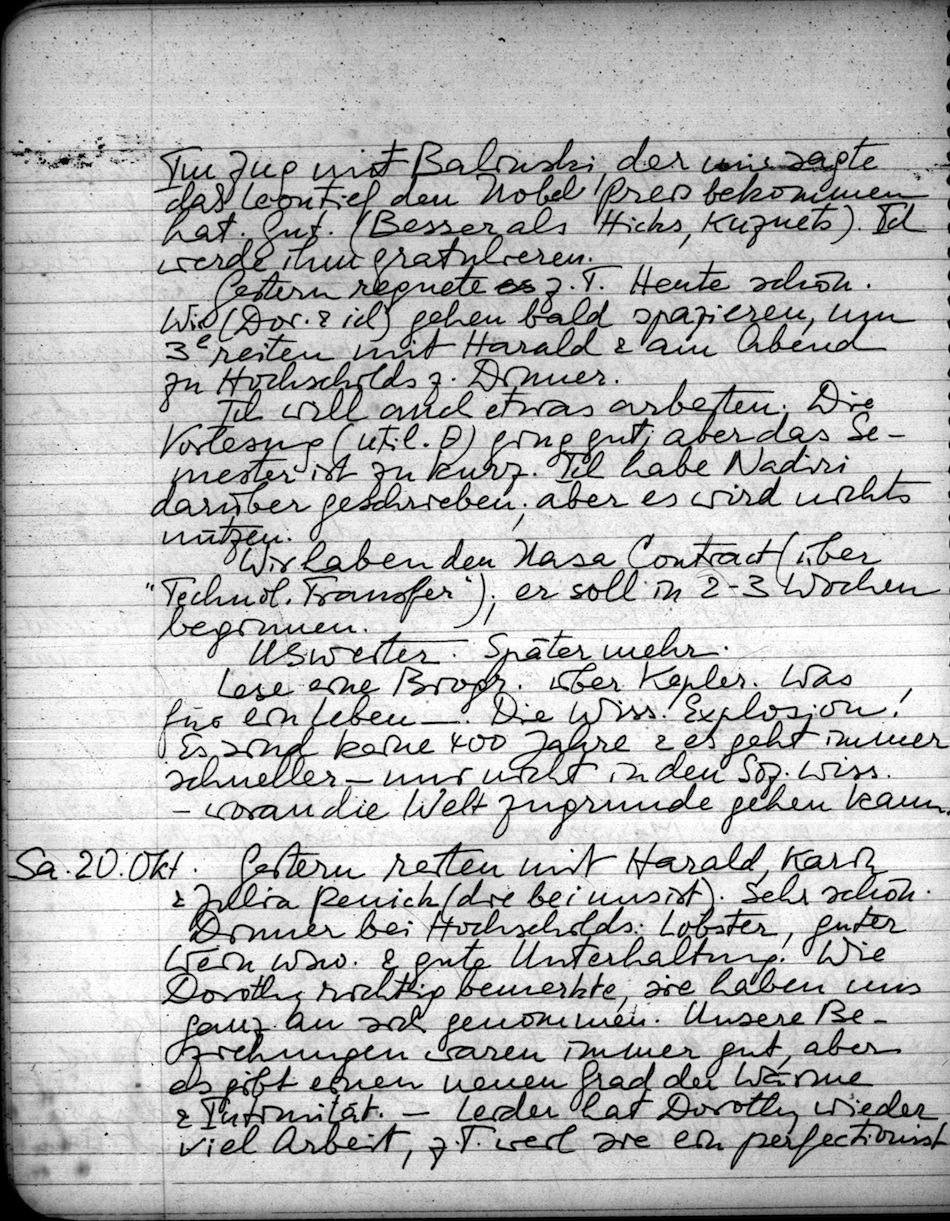 Im Zug mit Balinski, der mir sagte
das Leontief den Nobel Preis bekommen
hat. Gut. (Besser als Hicks, Kuznets). Ich
werde ihm gratulieren.
Gestern regnete es z.T. Heute schön.
Wir (Dor. & ich) gehen bald spazieren, um
3ʰ reiten mit Harald & am Abend
zu Hochschilds z. Dinner.
Ich will auch etwas arbeiten. Die
Vorlesung (util. θ) ging gut, aber das Se-
mester ist zu kurz. Ich habe Nadiri
darüber geschrieben, aber es wird nichts
nützen.
Wir haben den Nasa Contract (über
"Technol. Transfer"); er soll in 2-3 Wochen
beginnen.
USW weiter. Später mehr.
Lese eine Biogr. über Kepler. Was
für ein Leben —. Die Wiss. Explosion!
Es sind keine 400 Jahre & es geht immer
schneller – nur nicht in den Soz. wiss.
– woran die Welt zugrunde gehen kann.
Sa. 20. Okt. Gestern reiten mit Harald, Karin
& Julia Penick (die bei uns ist). Sehr schön.
Dinner bei Hochschilds: Lobster, guter
Wein usw. & gute Unterhaltung. Wie
Dorothy richtig bemerkte, sie haben uns
ganz an sich genommen. Unsere Be-
ziehungen waren immer gut, aber
es gibt einen neuen Grad der Wärme
& Intimität. – Leider hat Dorothy wieder
viel Arbeit, z.T. weil sie ein perfectionist